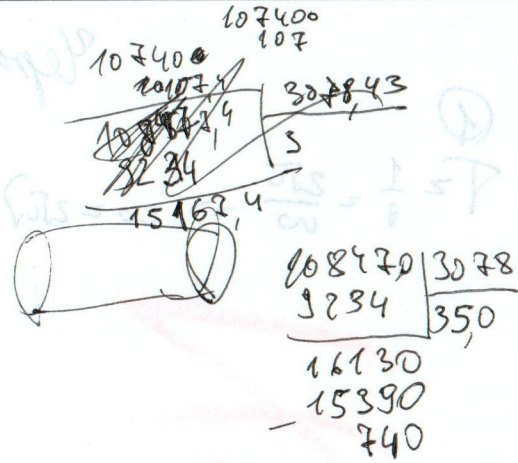 107400
107
10740
1074
3078,43
3
9234
15167,4
108470 3078
9234 35,0
16130
15390
- 740